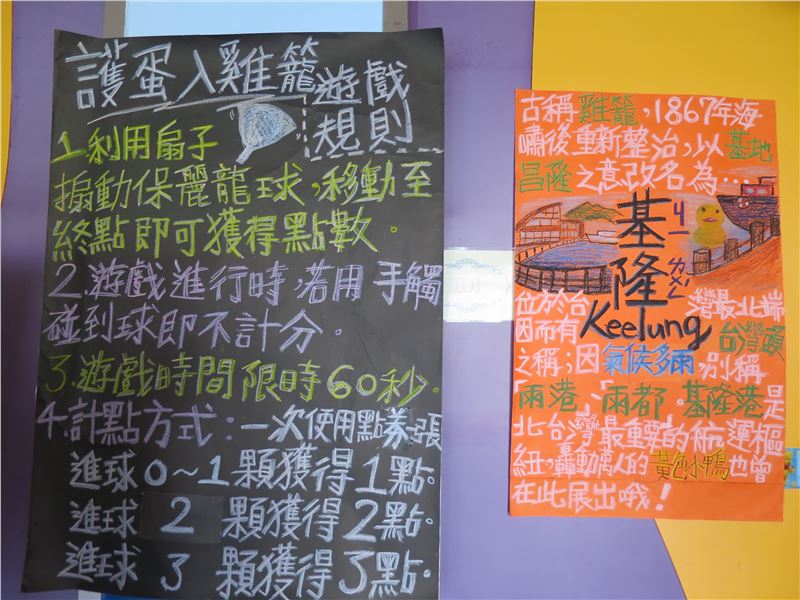 護蛋入雞籠遊戲
規則
1.利用扇子
搧動保麗龍球,移動至
終點即可獲得點數。
2.遊戲進行時,若用手觸
碰到球即不計分。
3.遊戲時間限時60秒.
4.計點方式:一次使用點券一張
進球0~1顆獲得1點.
進球2顆獲得2點.
進球3顆獲得3點.
101
古稱雞籠,1867年海
嘯後重新整治,以基地
昌隆之意改名為...
基ㄐㄧ
隆ㄌㄨㄥˊ
Keelung
位於台灣最北端
因而有台灣頭
之稱;因氣候多雨,別稱
「雨港」、「雨都」.基隆港是
北台灣最重要的航運樞
紐,轟動萬人的黃色小鴨也曾
在此展出哦!